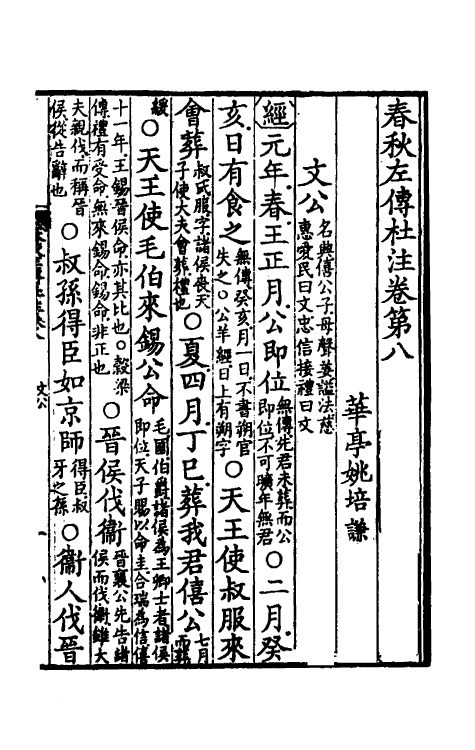 春秋左傳杜注卷第八
華亭姚培謙
文公 名興僖公子母聲姜謚法慈惠愛民曰文忠信接禮曰文
經元年春王正月公即位 無傳先君未葬而公即位不可曠年無君 ○二月癸
亥日有食之 無傳癸亥月一日不書朔官失之○公羊經日上有朔字 ○天王使叔服來
會葬 叔氏服字諸侯喪天子使大夫會葬禮也 ○夏四月丁巳葬我君僖公 七月而葬
緩 ○天王使毛伯來錫公命 毛國伯爵諸侯為王卿士者諸侯即位天子賜以命圭合瑞為信僖
十一年王錫晉侯命亦其比也○穀梁傳禮有受命無來錫命錫命非正也 ○晉侯伐衞 晉襄公先告諸侯而伐衞雖大
夫親伐而稱晉侯從告辭也 ○叔孫得臣如京師 得臣叔牙之孫 ○衞人伐晉
文公